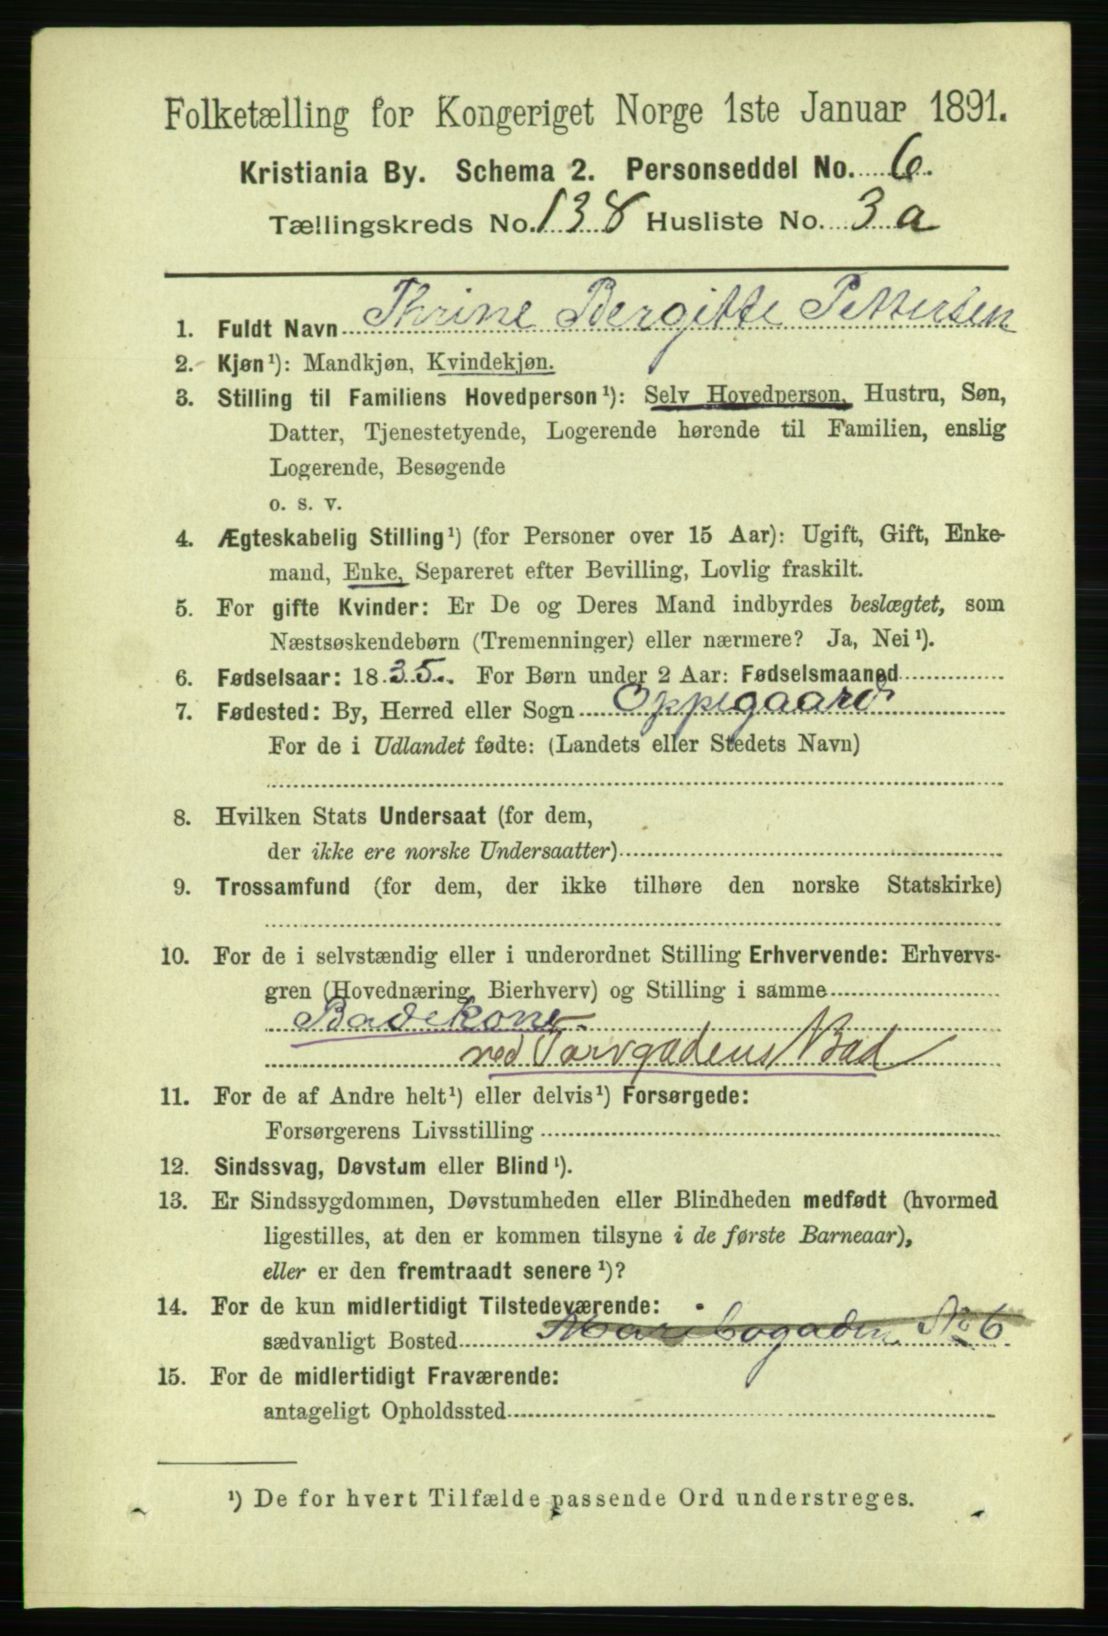 Folketælling for Kongeriget Norge 1ste Januar 1891.
Kristiania By. Schema 2. Personseddel No. 6.
Tællingskreds No. 138 Husliste No. 3 a
1. Fuldt Navn Thrine Bergitte Pettersen
2. Kjøn¹): Mandkjøn, Kvindekjøn.
3. Stilling til Familiens Hovedperson¹): Selv Hovedperson, Hustru, Søn,
Datter, Tjenestetyende, Logerende hørende til Familien, enslig
Logerende, Besøgende
o. s. v.
4. Ægteskabelig Stilling¹) (for Personer over 15 Aar): Ugift, Gift, Enke-
mand, Enke, Separeret efter Bevilling, Lovlig fraskilt.
5. For gifte Kvinder: Er De og Deres Mand indbyrdes beslægtet, som
Næstsøskendebørn (Tremenninger) eller nærmere? Ja, Nei¹).
6. Fødselsaar: 1835. For Børn under 2 Aar: Fødselsmaaned
7. Fødested: By, Herred eller Sogn Oppegaard
For de i Udlandet fødte: (Landets eller Stedets Navn)
8. Hvilken Stats Undersaat (for dem,
der ikke ere norske Undersaatter)
9. Trossamfund (for dem, der ikke tilhøre den norske Statskirke)
10. For de i selvstændig eller i underordnet Stilling Erhvervende: Erhvervs-
gren (Hovednæring, Bierhverv) og Stilling i samme
Badekone.
ved Torvgadens Bad
11. For de af Andre helt¹) eller delvis¹) Forsørgede:
Forsørgerens Livsstilling
12. Sindssvag, Døvstum eller Blind¹).
13. Er Sindssygdommen, Døvstumheden eller Blindheden medfødt (hvormed
ligestilles, at den er kommen tilsyne i de første Barneaar),
eller er den fremtraadt senere¹)?
14. For de kun midlertidigt Tilstedeværende:
sædvanligt Bosted Maribogaden No 6
15. For de midlertidigt Fraværende:
antageligt Opholdssted
¹) De for hvert Tilfælde passende Ord understreges.